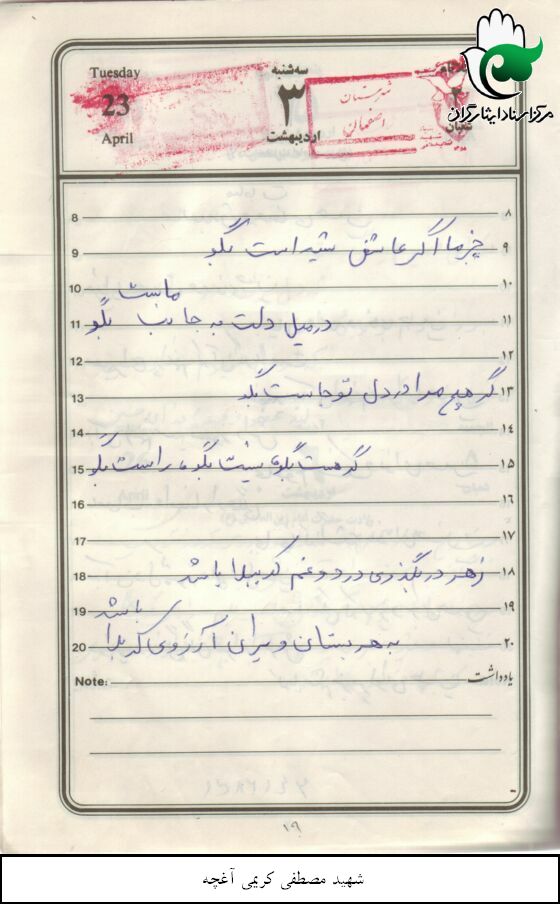 Tuesday
23
April
سه‌شنبه
۳
اردیبهشت
شعبان
شهرستان
اصفهان
مرکز اسناد ایثارگران
8 ۸
جز ما اگر عاشق شیداست بگو
9 ۹
10 ۱۰
ور میل دلت به جانب ماست بگو
11 ۱۱
12 ۱۲
گر هیچ مرا در دل تو جاست بگو
13 ۱۳
14 ۱۴
گر هست بگو، نیست بگو، راست بگو
15 ۱۵
16 ۱۶
17 ۱۷
ز هر در بگذری درد و غم کربلا باشد
18 ۱۸
19 ۱۹
به هر بستان ویران آرزوی کربلا باشد
20 ۲۰
Note: یادداشت
۱۹
شهید مصطفی کریمی آغچه